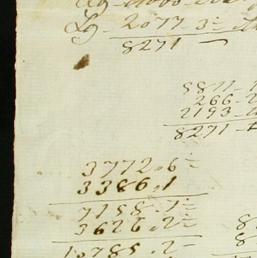 2077-3=
8271 —
5811-
266-2
2193-
8271-
3772.6=
3386.1
7158.1=
3626.2=
10.785.2-
8
8